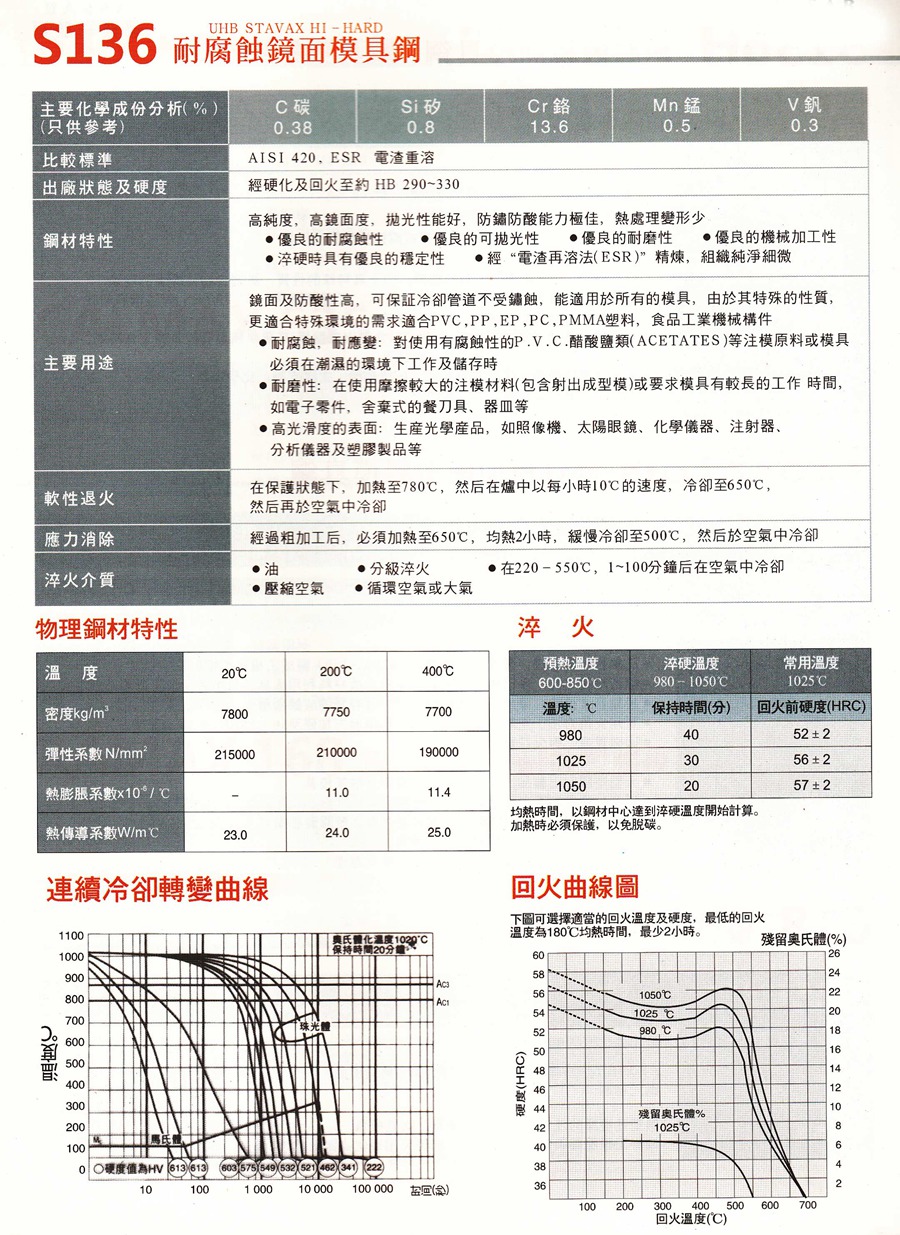 UHB STAVAX HI－HARD
S136 耐腐蝕鏡面模具鋼
主要化學成份分析(%)
(只供參考)
C 碳
0.38
Si 矽
0.8
Cr 鉻
13.6
Mn 錳
0.5
V 釩
0.3
比較標準
AISI 420, ESR 電渣重溶
出廠狀態及硬度
經硬化及回火至約 HB 290~330
鋼材特性
高純度，高鏡面度，拋光性能好，防鏽防酸能力極佳，熱處理變形少
●優良的耐腐蝕性 ●優良的可拋光性 ●優良的耐磨性 ●優良的機械加工性
●淬硬時具有優良的穩定性 ●經“電渣再溶法(ESR)”精煉，組織純淨細微
主要用途
鏡面及防酸性高，可保証冷卻管道不受鏽蝕，能適用於所有的模具，由於其特殊的性質，
更適合特殊環境的需求適合PVC,PP,EP,PC,PMMA塑料，食品工業機械構件
●耐腐蝕，耐應變：對使用有腐蝕性的P.V.C.醋酸鹽類(ACETATES)等注模原料或模具
必須在潮濕的環境下工作及儲存時
●耐磨性：在使用摩擦較大的注模材料(包含射出成型模)或要求模具有較長的工作 時間，
如電子零件，舍棄式的餐刀具、器皿等
●高光滑度的表面：生産光學産品，如照像機、太陽眼鏡、化學儀器、注射器、
分析儀器及塑膠製品等
軟性退火
在保護狀態下，加熱至780℃，然后在爐中以每小時10℃的速度，冷卻至650℃，
然后再於空氣中冷卻
應力消除
經過粗加工后，必須加熱至650℃，均熱2小時，緩慢冷卻至500℃，然后於空氣中冷卻
淬火介質
●油 ●分級淬火 ●在220－550℃，1~100分鐘后在空氣中冷卻
●壓縮空氣 ●循環空氣或大氣
物理鋼材特性
溫 度 20℃ 200℃ 400℃
密度kg/m³ 7800 7750 7700
彈性系數 N/mm² 215000 210000 190000
熱膨脹系數x10⁻⁶/℃ － 11.0 11.4
熱傳導系數W/m℃ 23.0 24.0 25.0
淬 火
預熱溫度
600-850℃
淬硬溫度
980－1050℃
常用溫度
1025℃
溫度：℃ 保持時間(分) 回火前硬度(HRC)
980 40 52±2
1025 30 56±2
1050 20 57±2
均熱時間，以鋼材中心達到淬硬溫度開始計算。
加熱時必須保護，以免脫碳。
連續冷卻轉變曲線
奧氏體化溫度1020℃
保持時間20分鐘
溫度℃
1100
1000
900
800
700
600
500
400
300
200
100
0
AC3
AC1
珠光體
Ms
馬氏體
○硬度值為HV 613 613 603 575 549 532 521 462 341 222
10 100 1 000 10 000 100 000
回火曲線圖
下圖可選擇適當的回火溫度及硬度，最低的回火
溫度為180℃均熱時間，最少2小時。
殘留奧氏體(%)
硬度(HRC)
60
58
56
54
52
50
48
46
44
42
40
38
36
26
24
22
20
18
16
14
12
10
8
6
4
2
1050℃
1025 ℃
980 ℃
殘留奧氏體%
1025℃
100 200 300 400 500 600 700
回火溫度(℃)